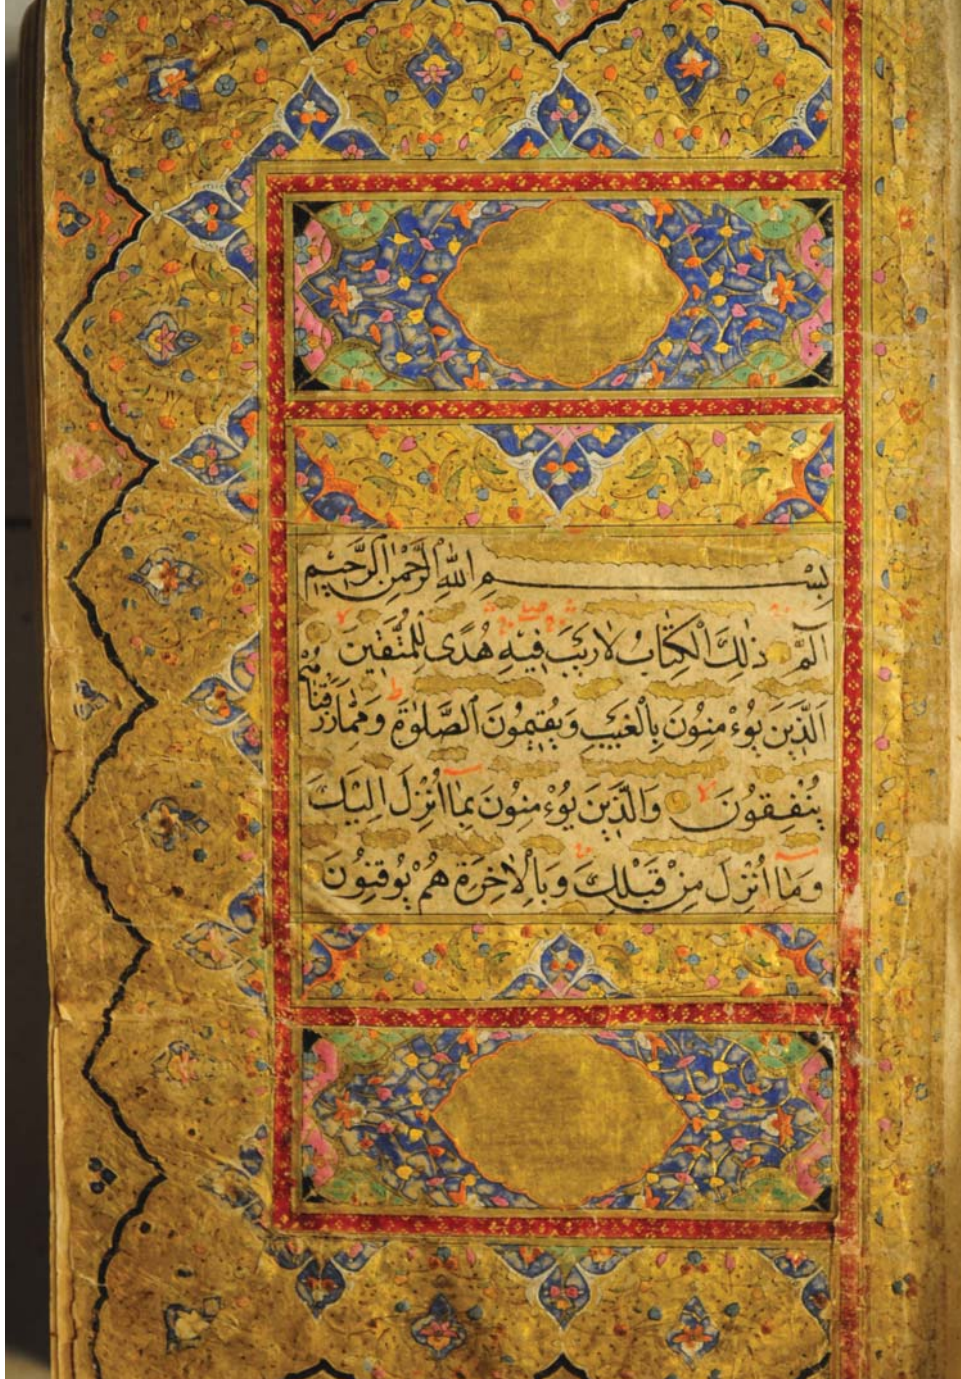 بِسْمِ اللّٰهِ الرَّحْمٰنِ الرَّحِيْمِ
آلٓمّٓ ذٰلِكَ الْكِتَابُ لَارَيْبَ فِيْهِ هُدًى لِلْمُتَّقِيْنَ
اَلَّذِيْنَ يُوءْمِنُونَ بِالْغَيْبِ وَيُقِيْمُونَ الصَّلٰوةَ وَمِمَّا رَزَقْنَا هُمْ
يُنْفِقُونَ وَالَّذِيْنَ يُوءْمِنُونَ بِمَا اُنْزِلَ اِلَيْكَ
وَمَا اُنْزِلَ مِنْ قَبْلِكَ وَبِالْاٰخِرَةِ هُمْ يُوقِنُونَ